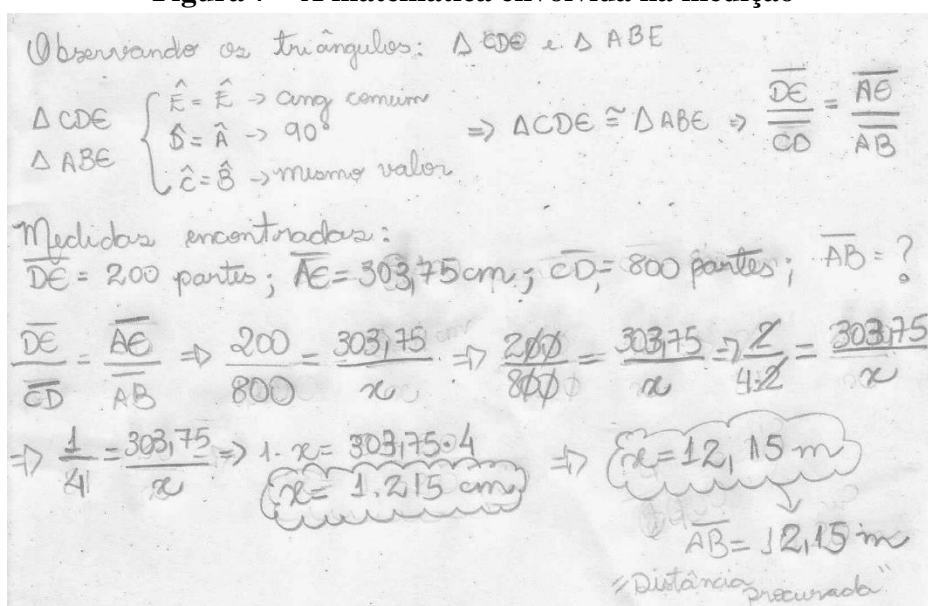 Figura 7 – A matemática envolvida na medição
Observando os triângulos: Δ CDE e Δ ABE
Δ CDE
Δ ABE
Ê = Ê -> ang comum
D̂ = Â -> 90°
Ĉ = B̂ -> mesmo valor.
=> ΔCDE ≅ ΔABE => DE/CD = AE/AB
Medidas encontradas:
DE = 200 partes; AE = 303,75cm; CD = 800 partes; AB = ?
DE/CD = AE/AB => 200/800 = 303,75/x => 200/800 = 303,75/x => 2/4.2 = 303,75/x
=> 1/4 = 303,75/x => 1. x = 303,75.4 => x = 12,15 m
x = 1.215 cm
AB = 12,15 m
"Distância procurada"